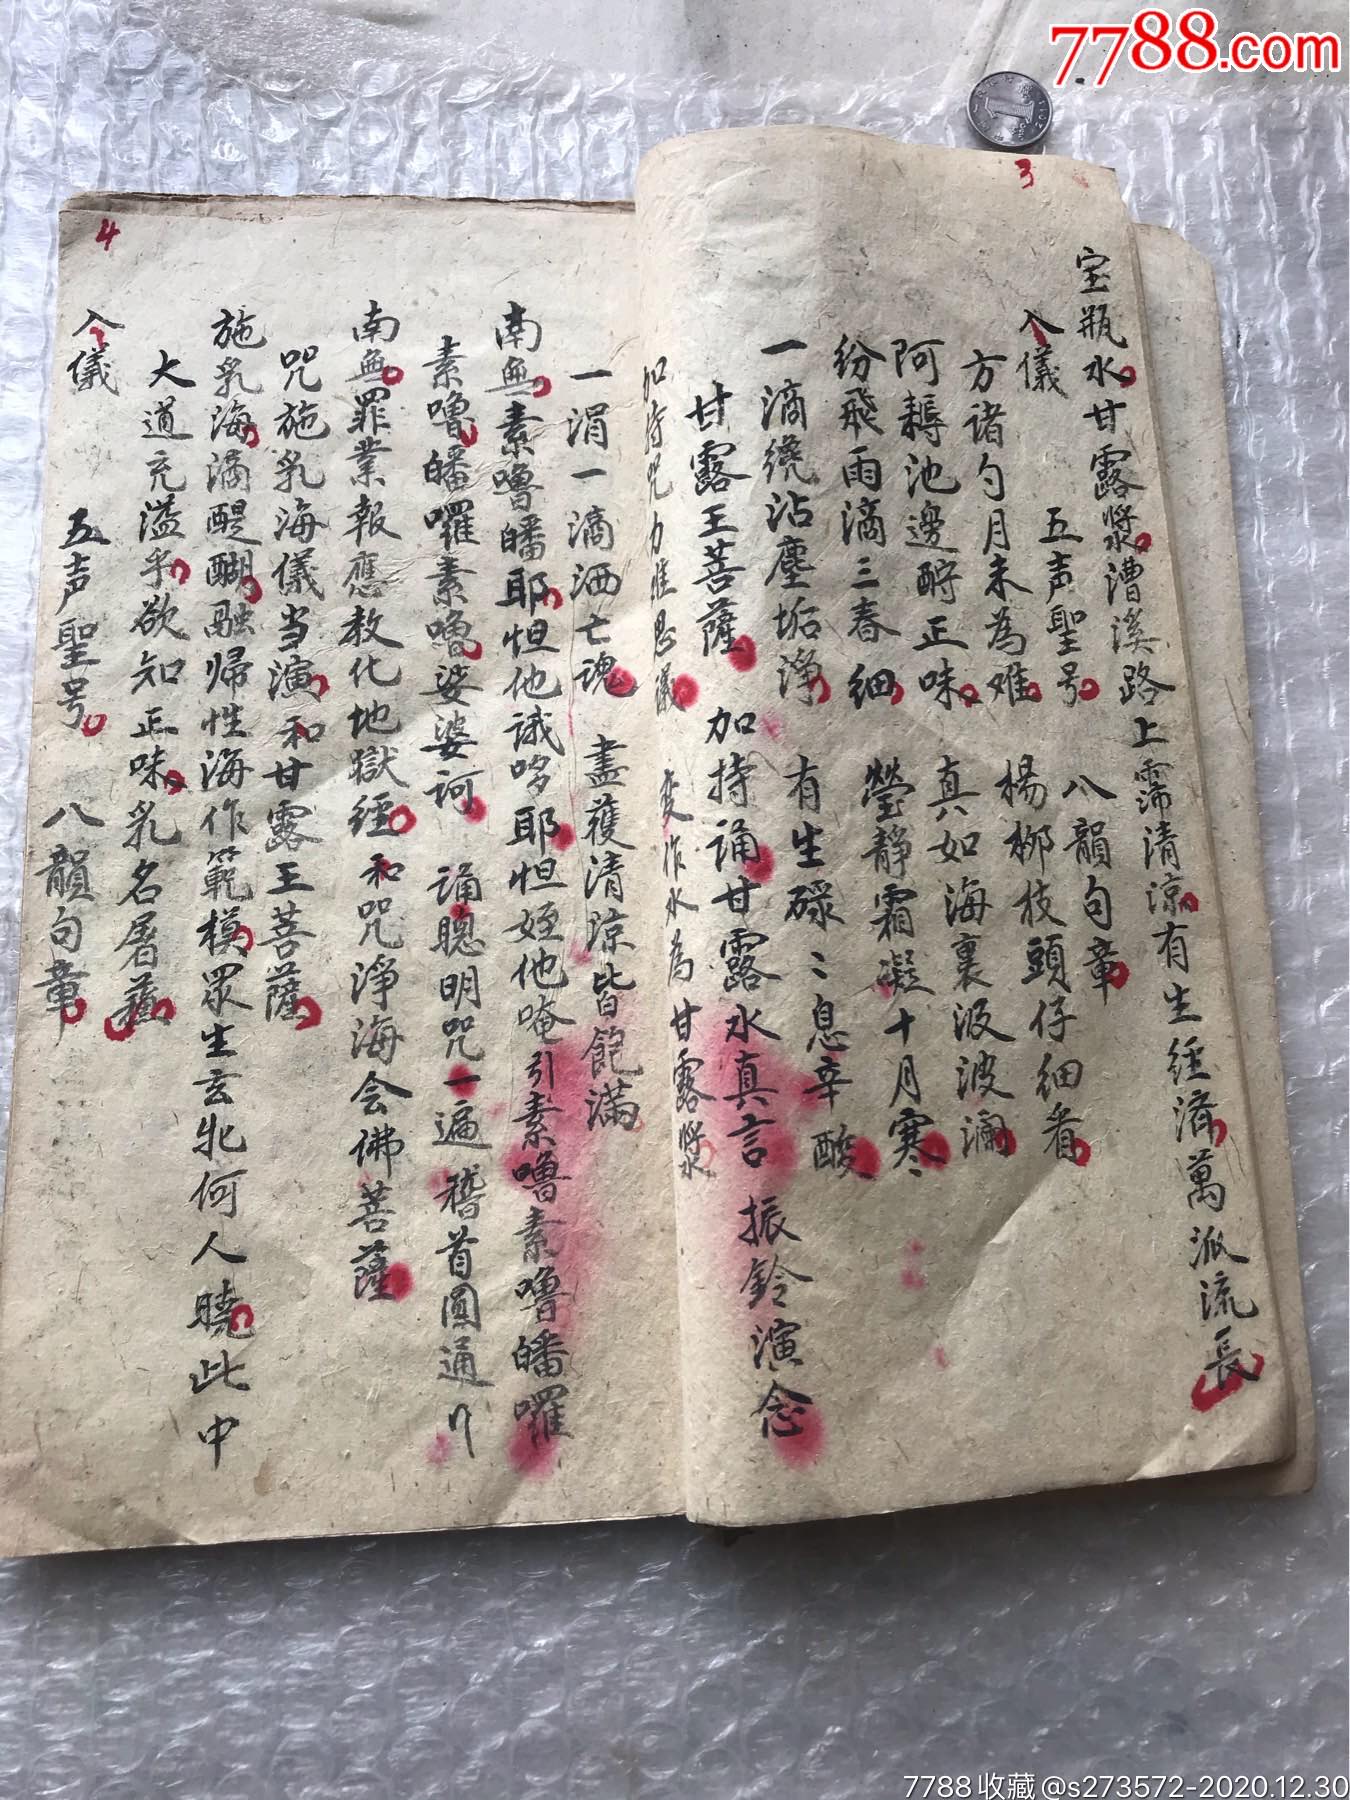 7788.com
3
宝瓶水甘露漿漕溪路上霈清凉有生經濟萬派流長
入儀 五声聖号 八韻句章
方诸勺月未為难 楊柳枝頭仔细看
阿耨池邊酹正味 真如海裏汲波瀾
纷飛雨滴三春细 瑩静霜凝十月寒
一滴绕沾塵垢淨 有生碌〻息辛酸
甘露王菩薩 加持诵甘露水真言 振鈴演念
加持咒力难思議 变作水為甘露漿
一涓一滴洒亡魂 盡獲清凉皆飽滿
南無素嚕皤耶怛他誐哆耶怛姪他唵引素嚕素嚕皤囉
素嚕皤囉素嚕娑婆訶 诵聰明咒一遍稽首圓通
南無罪業報應教化地獄經和咒淨海会佛菩薩
咒施乳海儀当演和甘露王菩薩
施乳海滴醍醐融帰性海作範模眾生玄牝何人曉此中
大道充溢乎欲知正味乳名屠蘓
入儀 五声聖号 八韻句章
4
7788收藏@s273572-2020.12.30